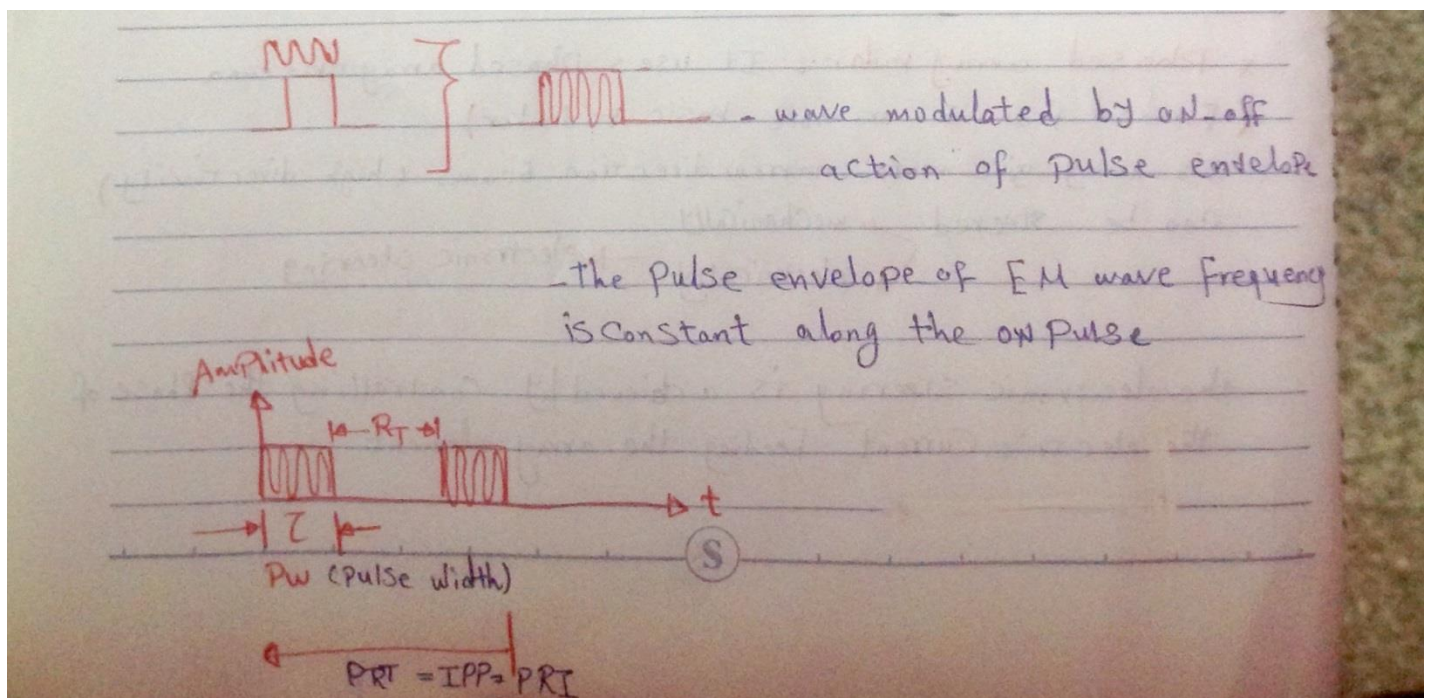 - wave modulated by ON-off
action of pulse envelope
- the pulse envelope of EM wave frequency
is constant along the ON pulse
Amplitude
RT
t
τ
S
PW (pulse width)
PRT = IPP = PRI